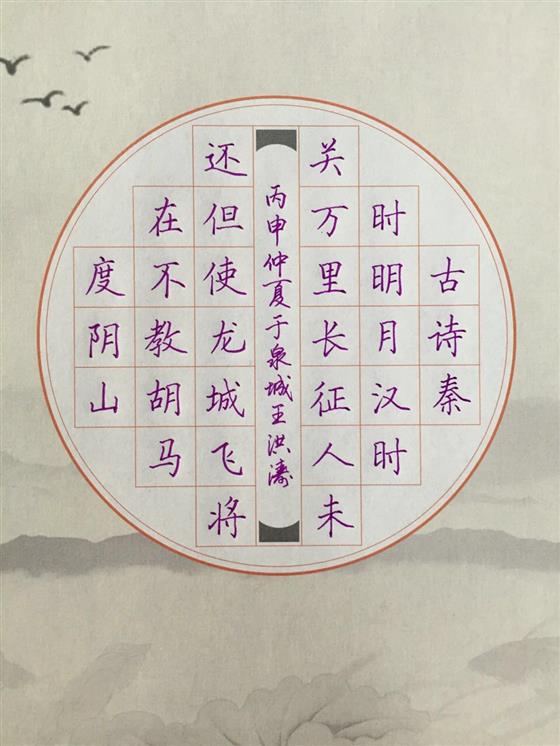 古诗秦
时明月汉时
关万里长征人未
还但使龙城飞将
在不教胡马
度阴山
丙申仲夏于泉城王洪涛